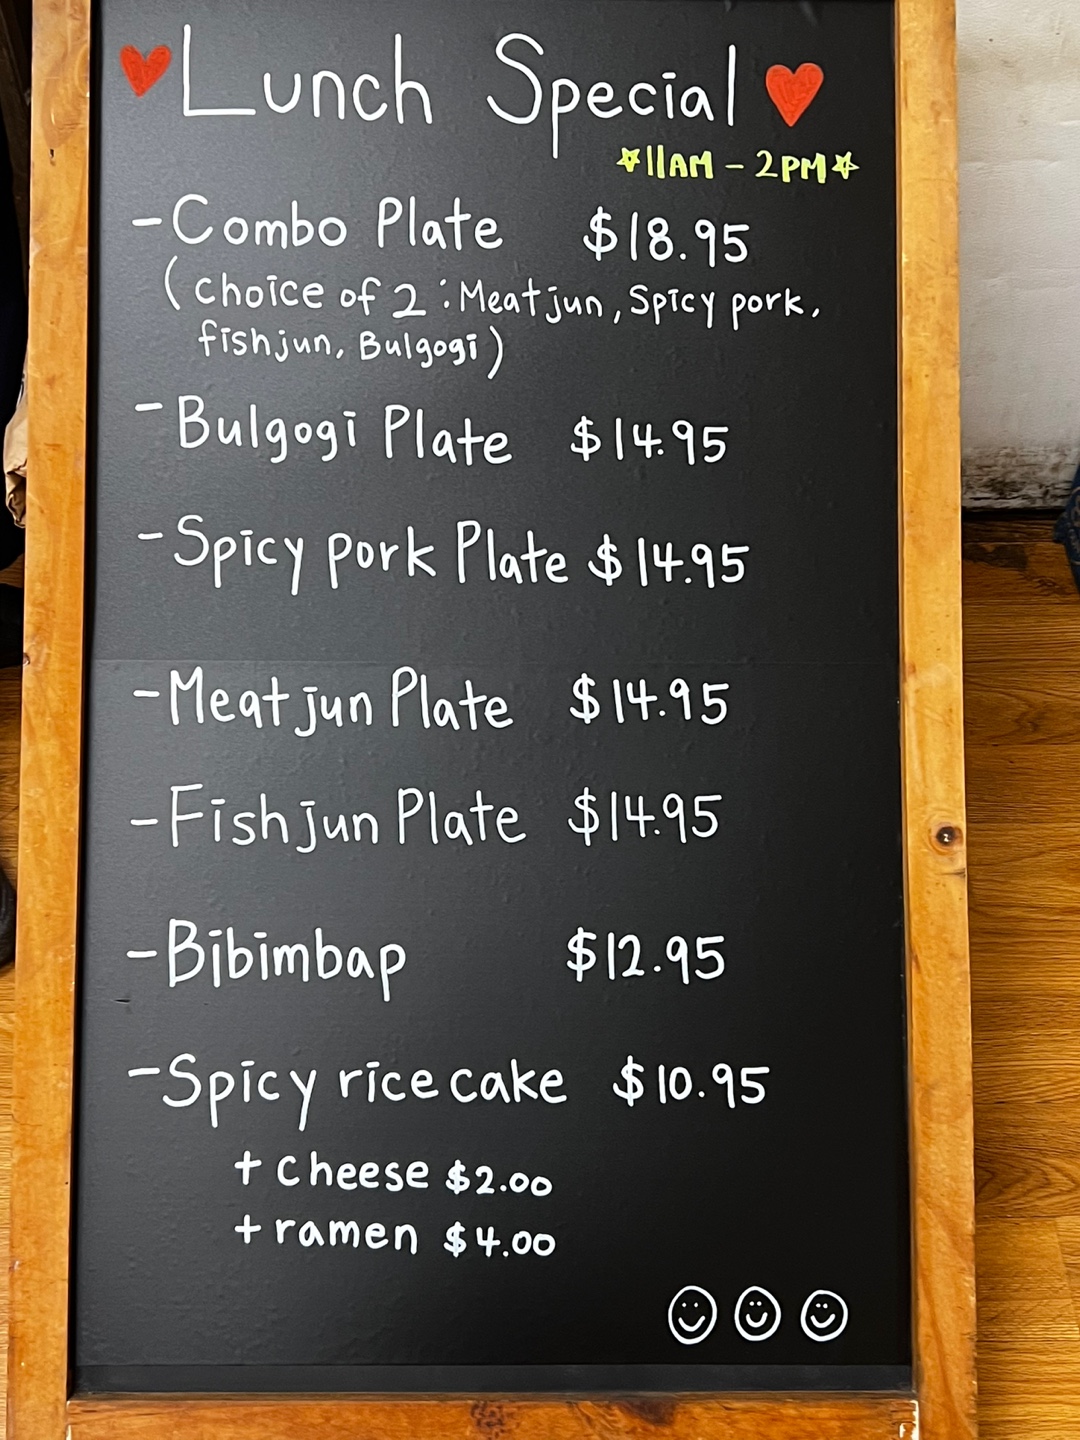 Lunch Special
11AM - 2PM
- Combo Plate $18.95
(choice of 2 : Meat jun, Spicy pork,
fish jun, Bulgogi)
- Bulgogi Plate $14.95
- Spicy pork Plate $14.95
- Meat jun Plate $14.95
- Fish jun Plate $14.95
- Bibimbap $12.95
- Spicy rice cake $10.95
+ cheese $2.00
+ ramen $4.00